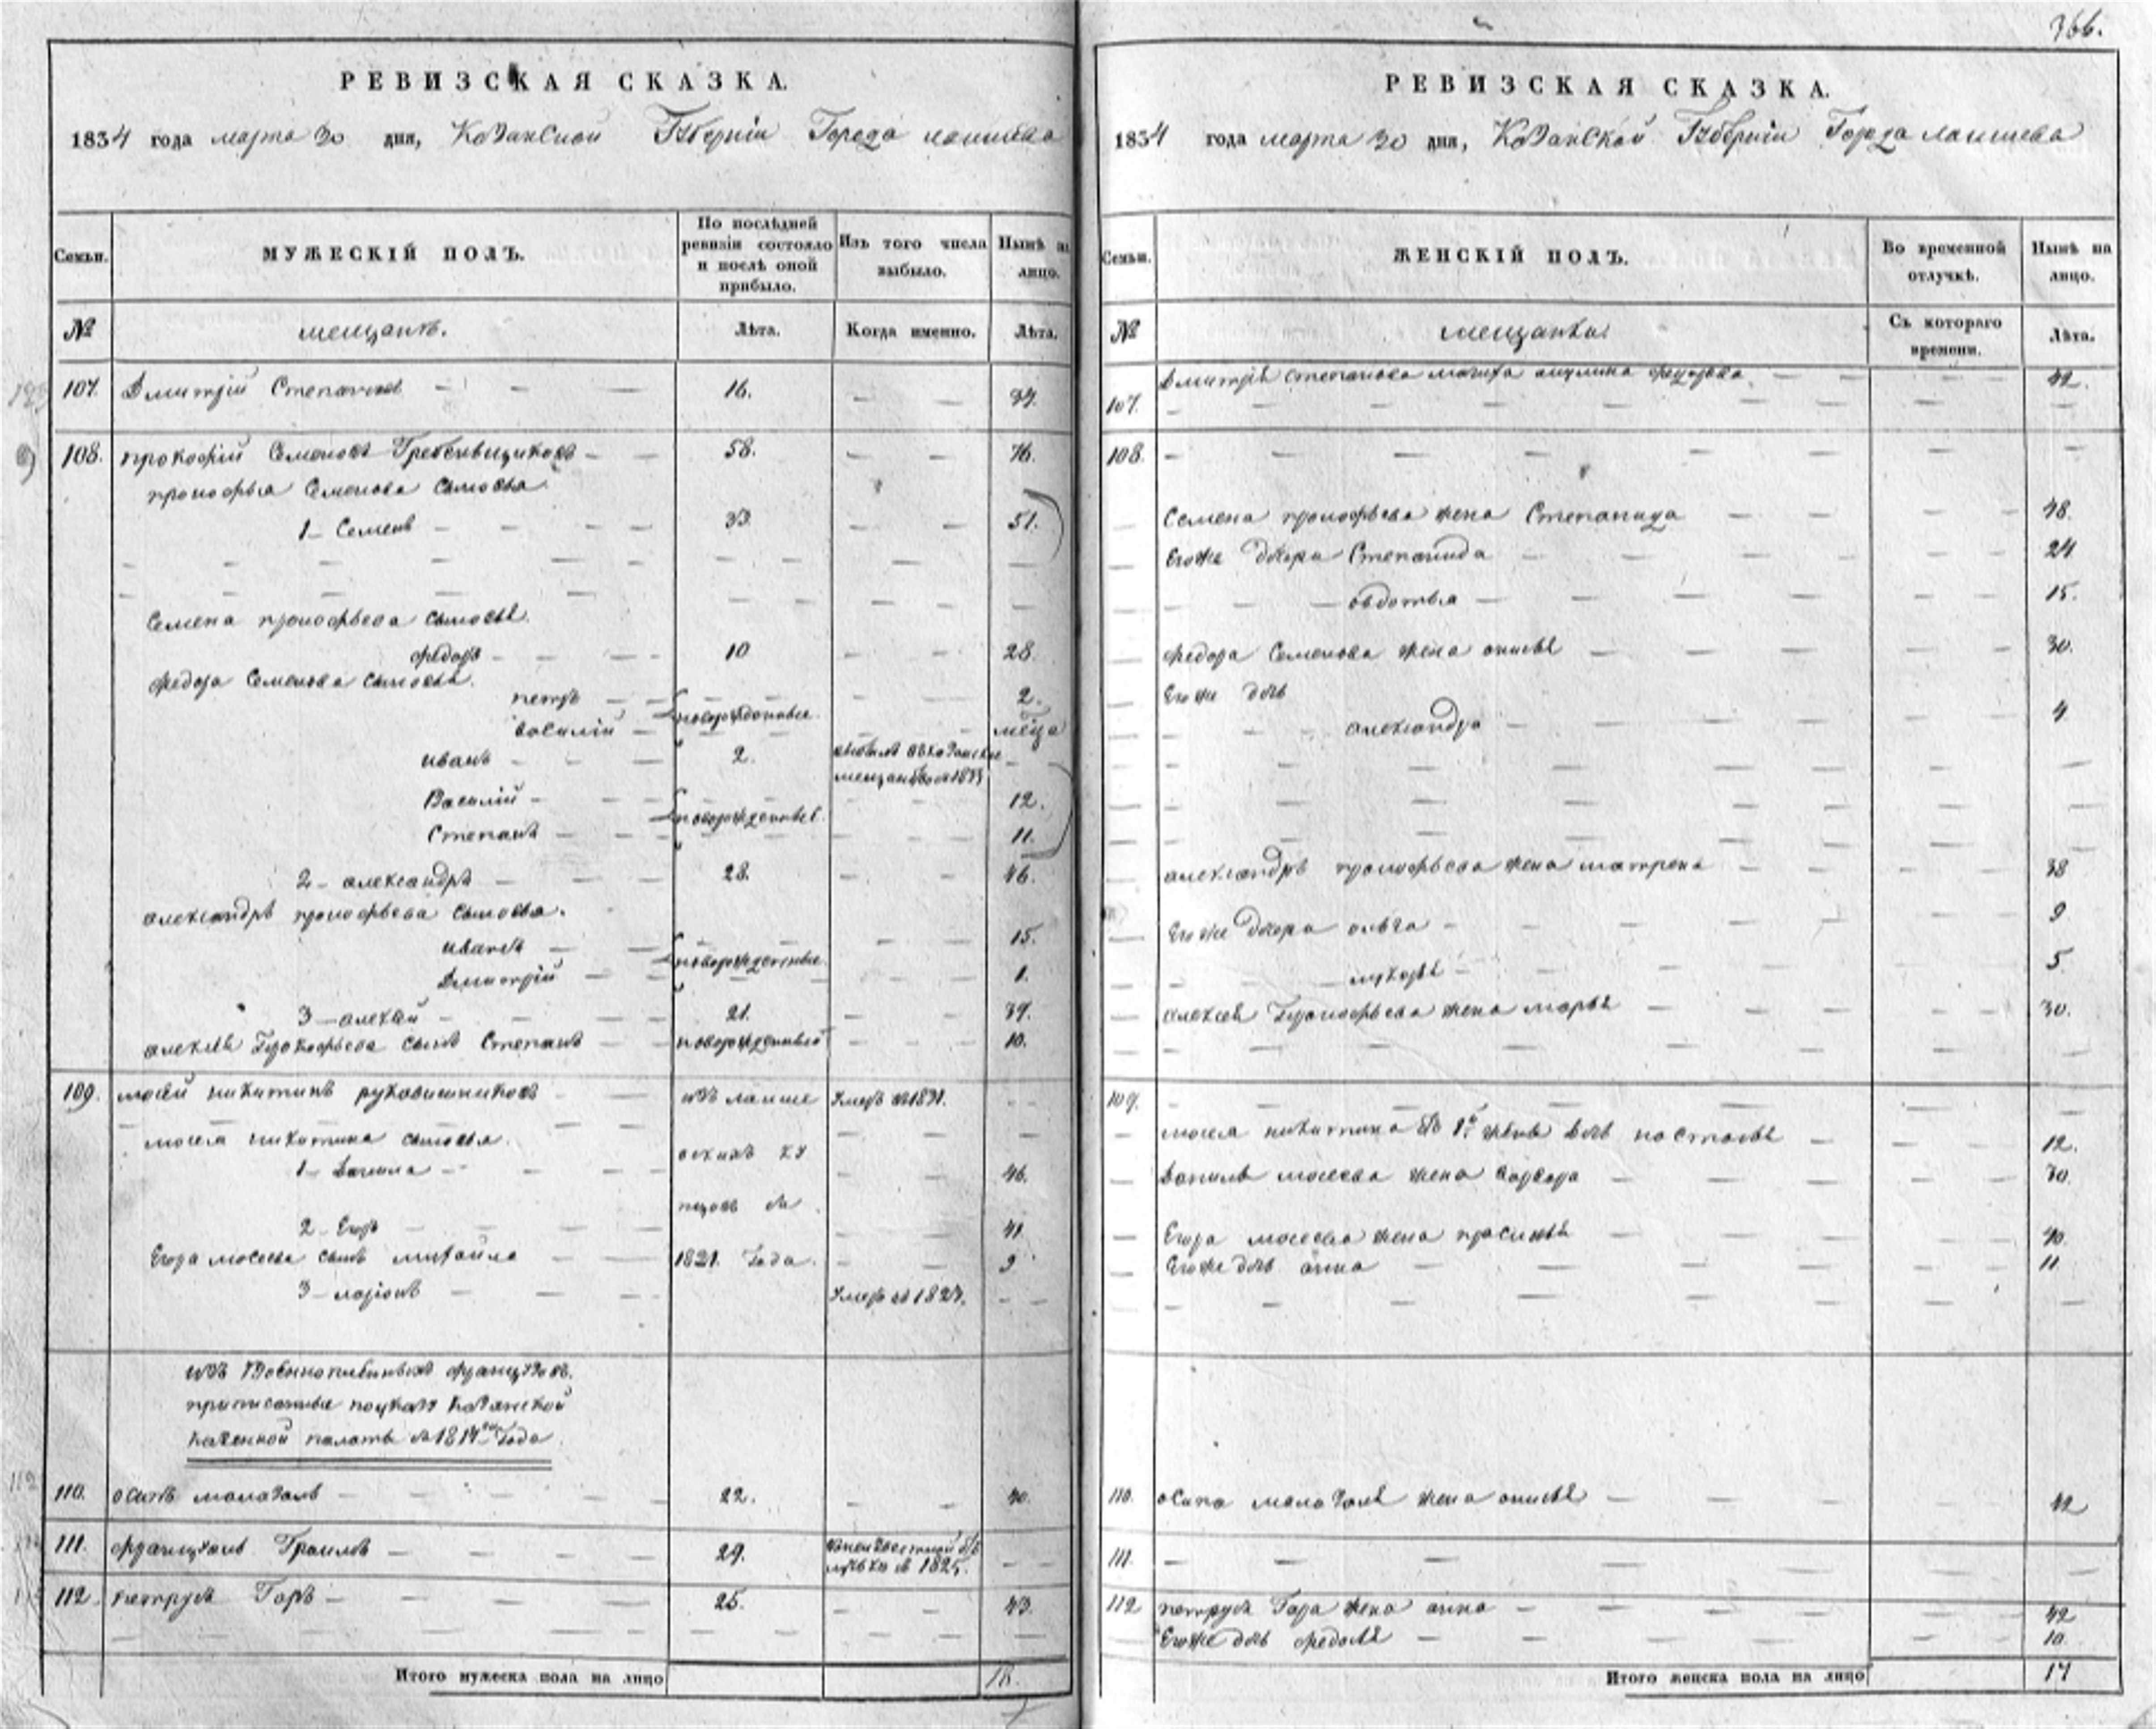 366.
РЕВИЗСКАЯ СКАЗКА.
1834 года марта 30 дня, Казанской Губерніи Города лаишева
Семьи.
МУЖЕСКІЙ ПОЛЪ.
По послѣдней ревизіи состояло и послѣ оной прибыло.
Изъ того числа выбыло.
Нынѣ на лицо.
№
мещанъ.
Лѣта.
Когда именно.
Лѣта.
107. Дмитрій Степановъ — 16. — 34.
108. прокофій Семеновъ Гребенщиковъ — 58. — 76.
прокофья Семенова сыновья
1 - Семенъ — 33. — 51.
Семена прокофьева сыновья
федоръ — 10 — 28.
федора Семенова сыновья.
петръ — 2.
новорожденные
василій — месяца
иванъ — 2. мещанство 1833
Василій — 12.
новорожденные
Степанъ — 11.
2 - александръ — 28. — 46.
александръ прокофьева сыновья.
иванъ — 15.
новорожденные
Дмитрій — 1.
3 - алексей — 21. — 39.
алексея Прокофьева сынъ Степанъ — новорожденный — 10.
109. мосей никитинъ рукавишниковъ — изъ лаише Умеръ въ 1831.
мосея никитина сыновья.
вскихъ ку
1 - Данила — 46.
пцовъ съ
2 - Егоръ — 41.
Егора мосеева сынъ михайла — 1821. Года. — 9
3 - ларіонъ — Умеръ въ 1827.
изъ Военнопленныхъ французовъ.
приписанные поуказу Казанской
Казенной палаты 1814го Года
110. осипъ — 22. — 40.
111. францъ — 29. въ 1825.
112. петрусъ Горъ — 25. — 43.
Итого мужеска пола на лицо 18.
РЕВИЗСКАЯ СКАЗКА.
1834 года марта 30 дня, Казанской Губерніи Города лаишева
Семьи.
ЖЕНСКІЙ ПОЛЪ.
Во временной отлучкѣ.
Нынѣ на лицо.
№
мещанки.
Съ котораго времени.
Лѣта.
107. Дмитрія степанова мачиха акулина федорова — 42.
108.
Семена прокофьева жена Степанида — 48.
Егоже дочери Степанида — 24
овдотья — 15.
федора Семенова жена — 30.
Егоже дочь
александра — 4
александръ прокофьева жена матрена — 38
Егоже дочери ольга — 9
5.
алексея Прокофьева жена марья — 30.
109.
мосея никитина 1й жены дочь настасья — 12.
Данилы мосеева жена варвара — 30.
Егора мосеева жена — 40.
Егоже дочь анна — 11
110. осипа жена — 42
111.
112 петруса Гора жена анна — 42
Егоже дочь — 10
Итого женска пола на лицо 17